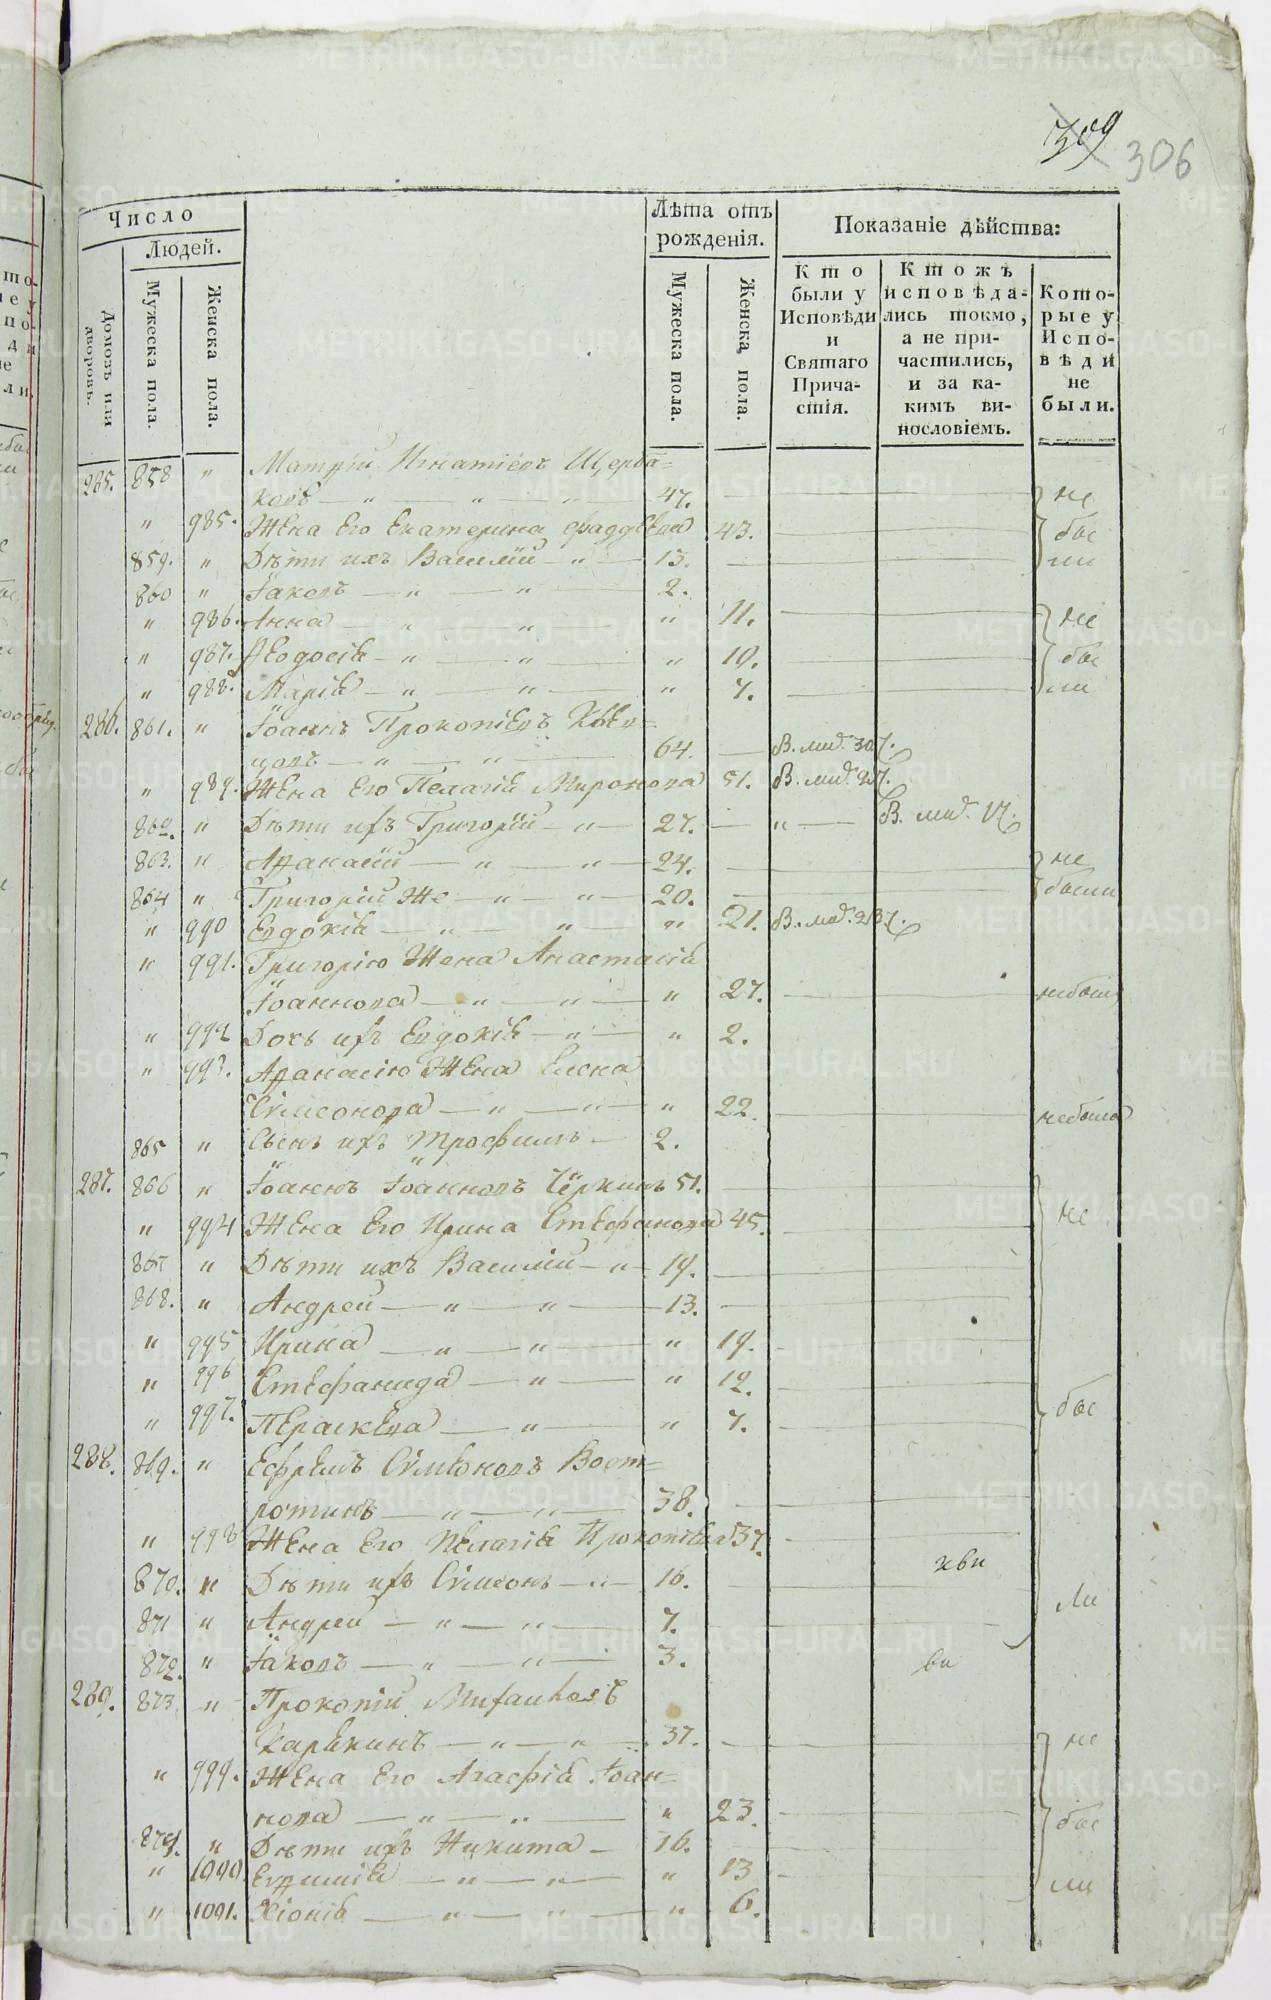 309 306
Число
Людей.
Домовъ или дворовъ.
Мужеска пола.
Женска пола.
Лѣта отъ рожденія.
Мужеска пола.
Женска, пола.
Показаніе дѣйства:
Кто были у Исповѣди и Святаго Причастія.
Ктожъ исповѣдались токмо, а не причастились, и за какимъ винословіемъ.
Которые у Исповѣди не были.
285. 858 " Игнатіевъ Щерба=
ковъ — " — " — " 47. не
" 985. Жена Его Екатерина Фаддѣева 43. бы
859. " Дѣти ихъ Василій — " — 13. ли
860 " Іаковъ — " — " — 2.
" 986. Анна — " — " — " 11. не
" 987. Ѳеодосія — " — " — " 10. бы
" 988. Марія — " — " — " 7. ли
286. 861. " Іоаннъ Прокопіевъ
— " — " — 64. —
" 989. Жена Его Пелагія Миронова 51.
862. " Дѣти ихъ Григорій — " — 27. — " —
863. " Аѳанасій — " — " — 24. не
864 " Григорій Же — " — " — 20. были
" 990 Евдокія — " — " — " 21.
" 991. Григорію Жена Анастасія
Іоаннова — " — " — " 27.
" 992 Дочь ихъ Евдокія — " — " 2.
" 993. Аѳанасію Жена Елена
Сѵмеонова — " — " — " 22. небыла
865 " Сынъ ихъ Трофимъ — 2.
287. 866 " Іоаннъ Іоанновъ Чёркинъ 51.
" 994 Жена Его Ирина Стефанова 45. не
867 " Дѣти ихъ Василій — " — 19.
868. " Андрей — " — " — 13.
" 995 Ирина — " — " — " 19.
" 996 Стефанида — " — " 12.
" 997. Параскева — " — " 7. бы
288. 869. " Ефремъ Сѵмеоновъ Вост=
ротинъ — " — " — 38.
" 998 Жена Его Пелагія Прокопіева 37.
870. " Дѣти ихъ Сѵмеонъ — " — 16.
871 " Андрей — " — " — 7. ли
872. " Іаковъ — " — " — 3.
289. 873 " Прокопій Михаиловъ
Карѣкинъ — " — " — 37. не
" 999. Жена Его Агафія Іоан=
нова — " — " — " 23. бы
874. " Дѣти ихъ Никита — 16.
" 1000. Евѳимія — " — " — " 13 ли
" 1001. Хіонія — " — " — " 6.
METRIKI.GASO-URAL.RU